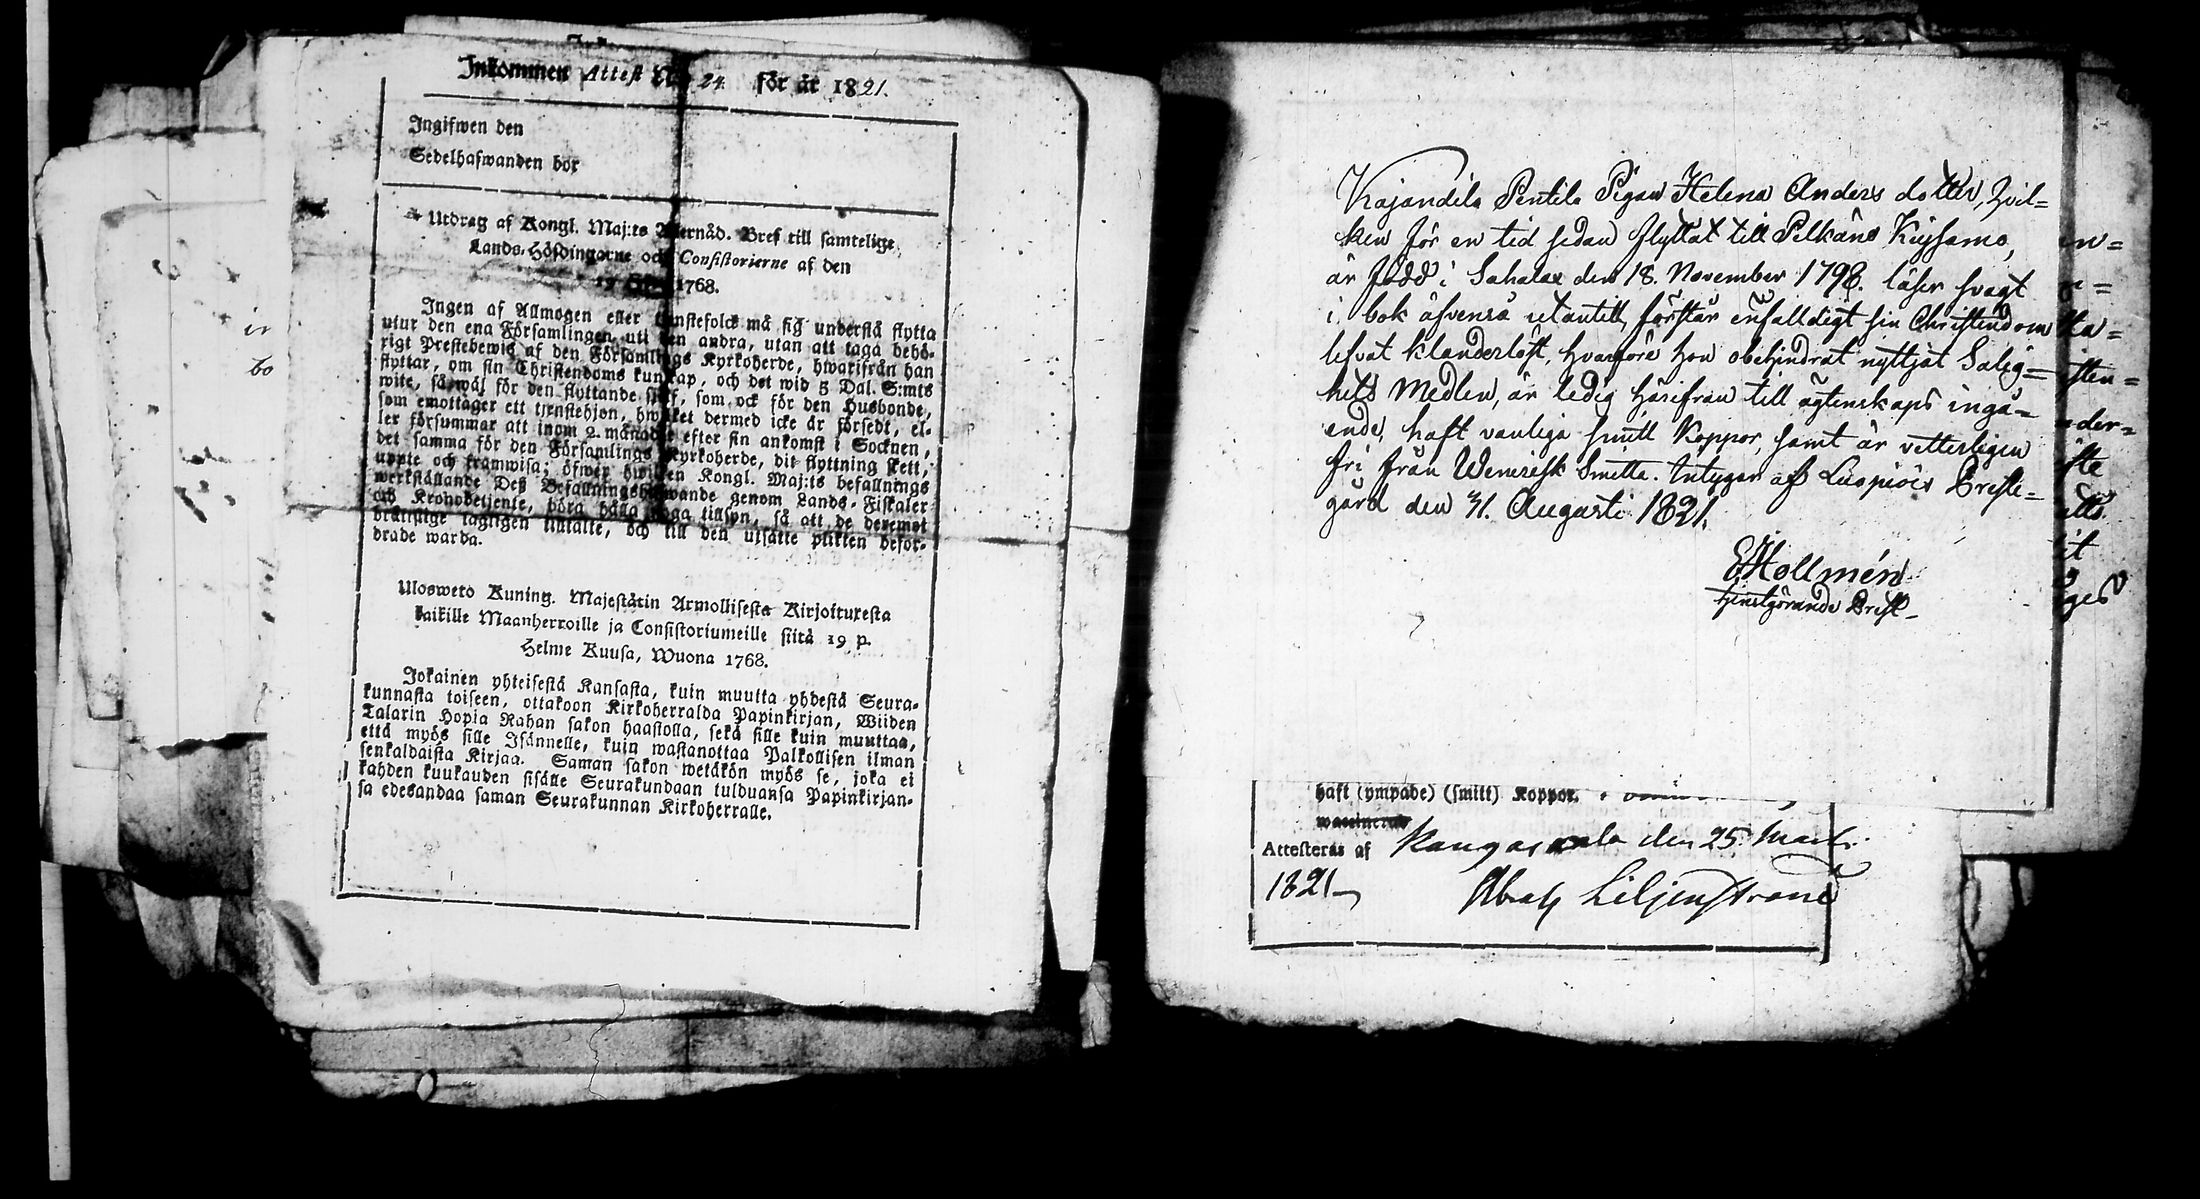 Inkommen Attest No 24 för år 1821.
Ingifwen den
Sedelhafwanden bor
Utdrag af Kongl. Maj:ts Bref till samtelige
Lands-Höfdingarne och Consistorierne af den
19 1768.
Ingen af Allmogen eller tjenstefolck må sig understå flytta
utur den ena Församlingen uti den andra, utan att taga behö-
rigt Prestebewis af den Församlings Kyrkoherde, hwarifrån han
flyttar, om sin Christendoms kunskap, och det wid 5 Dal. S:mts
wite, så wäl för den flyttande sjelf, som ock för den Husbonde,
som emottager ett tjenstehjon, hwilket dermed icke är försedt, el-
ler försummar att inom 2. månader efter sin ankomst i Socknen,
det samma för den Församlings Kyrkoherde, dit flyttning skett,
uppte och framwisa; öfwer hwilken Kongl. Maj:ts befallnings
werkställande Deß Befallningshafwande genom Lands-Fiskaler
och Kronobetjente, böra hålla noga tillsyn, så att de deremot
bråttslige lagligen tilltalte, och till den utsatte plikten befor-
drade warda.
Uloswetö Kuning. Majestätin Armollisesta Kirjoituxesta
kaikille Maanherroille ja Consistoriumeille siitä 19 p.
Helme Kuusa, Wuona 1768.
Jokainen yhteisestä Kansasta, kuin muutta yhdestä Seura-
kunnasta toiseen, ottakoon Kirkoherralda Papinkirjan, Wiiden
Talarin Hopia Rahan sakon haastolla, sekä sille kuin muuttaa,
että myös sille Isännelle, kuin wastanottaa Palkollisen ilman
senkaldaista Kirjaa. Saman sakon wetäkön myös se, joka ei
kahden kuukauden sisälle Seurakundaan tulduansa Papinkirjan-
sa edesandaa saman Seurakunnan Kirkoherralle.
ir
bo
Kajandila Pentila Pigan Helena Anders dotter, hvil=
ken för en tid sedan flyttat till Pelkäne Kuisamo,
är född i Sahalax den 18. November 1798. läser svagt
i bok äfvenså utantill, förstår enfalldigt sin Christendom
lefvat klanderlöst, hvarföre hon obehindrat nyttjat Salig=
hets Medlen, är ledig härifrån till ägtenskaps ingå=
ende, haft vanliga smitt Koppor, samt är vetterligen
fri från Venerisk Smitta. Intygar af Luopiois Preste=
gård den 31. Augusti 1821.
EHollmén
tjenstgörande Prest
haft (ympade) (smitt) Koppor.
Attesteras af Kangasala den 25 Marti
1821 Abrah Liljenstrand